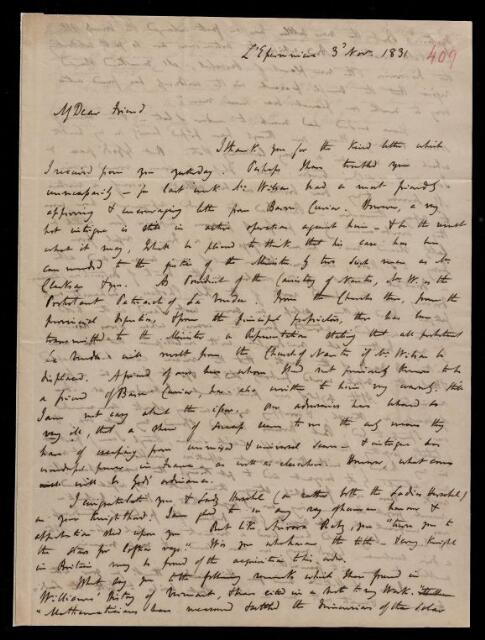 L'Eperonniere 3d Nov. 1831
409
My Dear Friend
I thank you for the kind letter which
I received from you yesterday. Perhaps I have troubled you
unnecessarily - for last week Mr. Wilson had a most friendly
approving & encouraging letter from Baron Cuvier. However, a very
hot intrigue is still in active operation against him - & be the result
what it may, I shall be pleased to think that his case has been
commended to the justice of the Minister by two such men as Mr.
& you. As President of the Consistory of Nantes, Mr W. is the
Protestant Patriarch of La Vendee. From the Church then, from the
provincial Deputies, & from the principal proprietors, there has been
transmitted to the Minister a Representation stating that all protestant
La Vendee will revolt from the Church of Nantes if Mr Wilson be
displaced. A friend of ours here whom I had not previously known to be
a friend of Baron Cuvier, has also written to him very warmly. Still
I am not easy about the issue. Our adversaries have behaved so
very ill, that a show of success seems to me the only means they
have of escaping from universal scorn - & intrigue has
wonderful power in France as well as elsewhere. However, what comes
will be God's ordinance.
I congratulate you & Lady Herschel (or rather both the Ladies Herschel)
on your Knighthood. I am glad to see any ray of human honour &
approbation shed upon you. But like Aurora Raby, you "turn you to
the stars for loftier rays." It is you who honour the title & every Knight
in Britain may be proud of the acquisition to his order.
What say you to the following remark, which I have found in
Williams' History of Vermont, & have cited in a note to my Work.
"Mathematicians have measured the dimensions of the solar